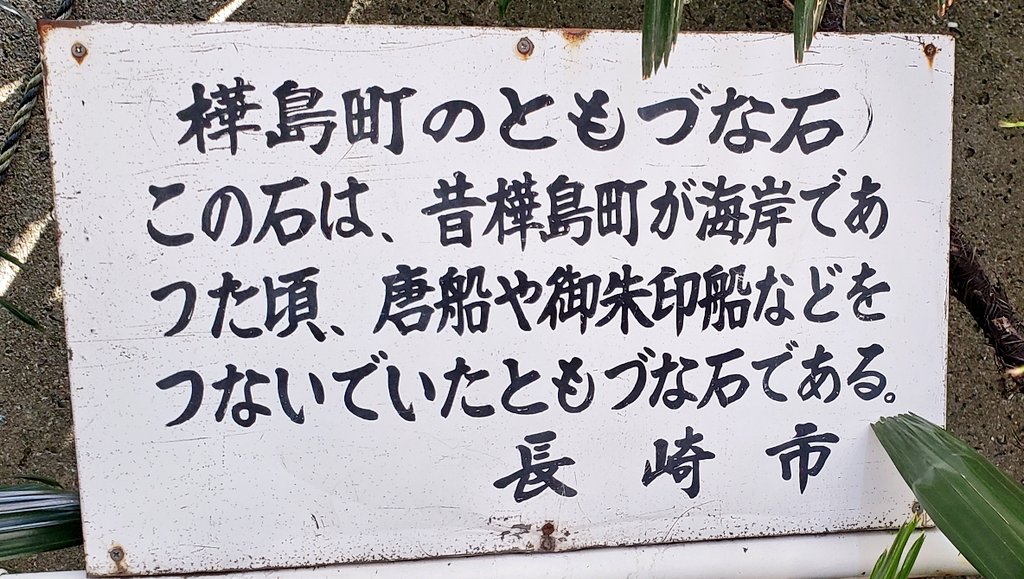 樺島町のともづな石
この石は、昔樺島町が海岸であ
つた頃、唐船や御朱印船などを
つないでいたともづな石である。
長崎市